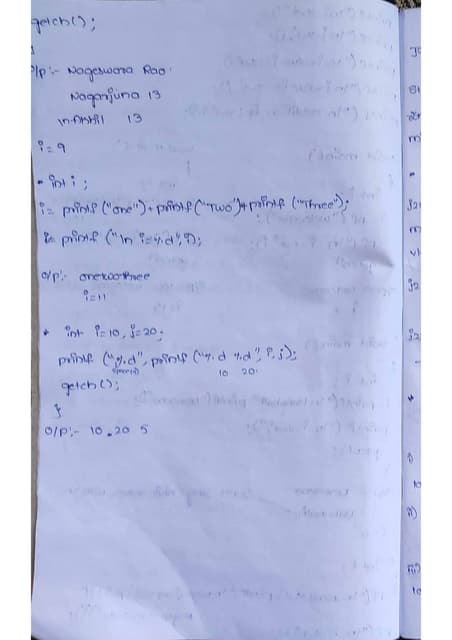 getch();
}
o/p:- Nageswara Rao
Nagarjuna 13
\n Akhil 13
i=9
• int i;
i= printf ("one")+printf("Two")+printf("Three");
printf ("\n i=%d",i);
o/p:- onetwothree
i=11
* int i=10, j=20;
printf ("%d", printf ("%d %d", i, j);
10 20
getch();
}
o/p:- 10 20 5